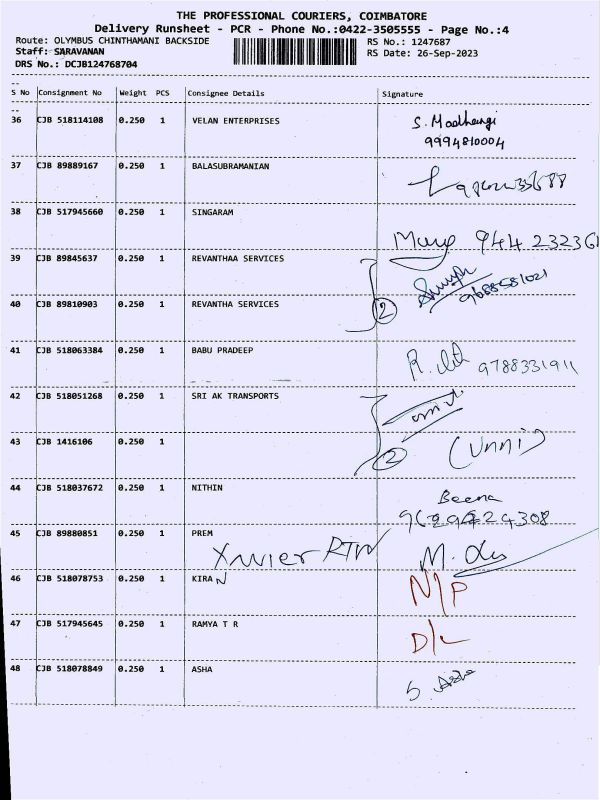 THE PROFESSIONAL COURIERS, COIMBATORE
Delivery Runsheet - PCR - Phone No.:0422-3505555 - Page No.:4
Route: OLYMBUS CHINTHAMANI BACKSIDE RS No.: 1247687
Staff: SARAVANAN RS Date: 26-Sep-2023
DRS No.: DCJB124768704
S No Consignment No Weight PCS Consignee Details Signature
36 CJB 518114108 0.250 1 VELAN ENTERPRISES
9994810004
37 CJB 89889167 0.250 1 BALASUBRAMANIAN
38 CJB 517945660 0.250 1 SINGARAM
Mary 944 232361
39 CJB 89845637 0.250 1 REVANTHAA SERVICES
9688581021
40 CJB 89810903 0.250 1 REVANTHA SERVICES
2
41 CJB 518063384 0.250 1 BABU PRADEEP
9788331911
42 CJB 518051268 0.250 1 SRI AK TRANSPORTS
43 CJB 1416106 0.250 1
(Unni)
2
44 CJB 518037672 0.250 1 NITHIN
Beena
45 CJB 89880851 0.250 1 PREM
Xavier RTN
46 CJB 518078753 0.250 1 KIRAN
N/P
47 CJB 517945645 1 0.250 1 RAMYA T R
D/L
48 CJB 518078849 0.250 1 ASHA
S. Asha